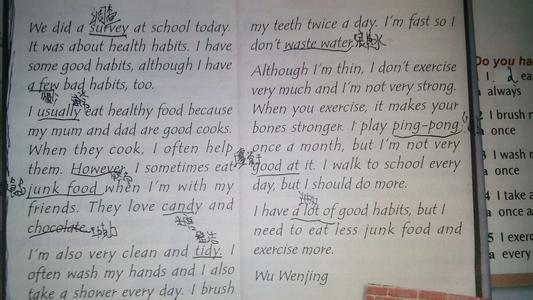 调查
We did a survey at school today.
It was about health habits. I have
some good habits, although I have
a few bad habits, too.
I usually eat healthy food because
my mum and dad are good cooks.
When they cook, I often help
them. However, I sometimes eat
junk food when I'm with my
friends. They love candy and
chocolate.
I'm also very clean and tidy. I
often wash my hands and I also
take a shower every day. I brush
my teeth twice a day. I'm fast so I
don't waste water.
Although I'm thin, I don't exercise
very much and I'm not very strong.
When you exercise, it makes your
bones stronger. I play ping-pong
once a month, but I'm not very
good at it. I walk to school every
day, but I should do more.
I have a lot of good habits, but I
need to eat less junk food and
exercise more.
Wu Wenjing
Do you ha
1 I
a always
I brush m
a once
3 I wash m
a once
4 I take a
a once a
5 I exerc
a every